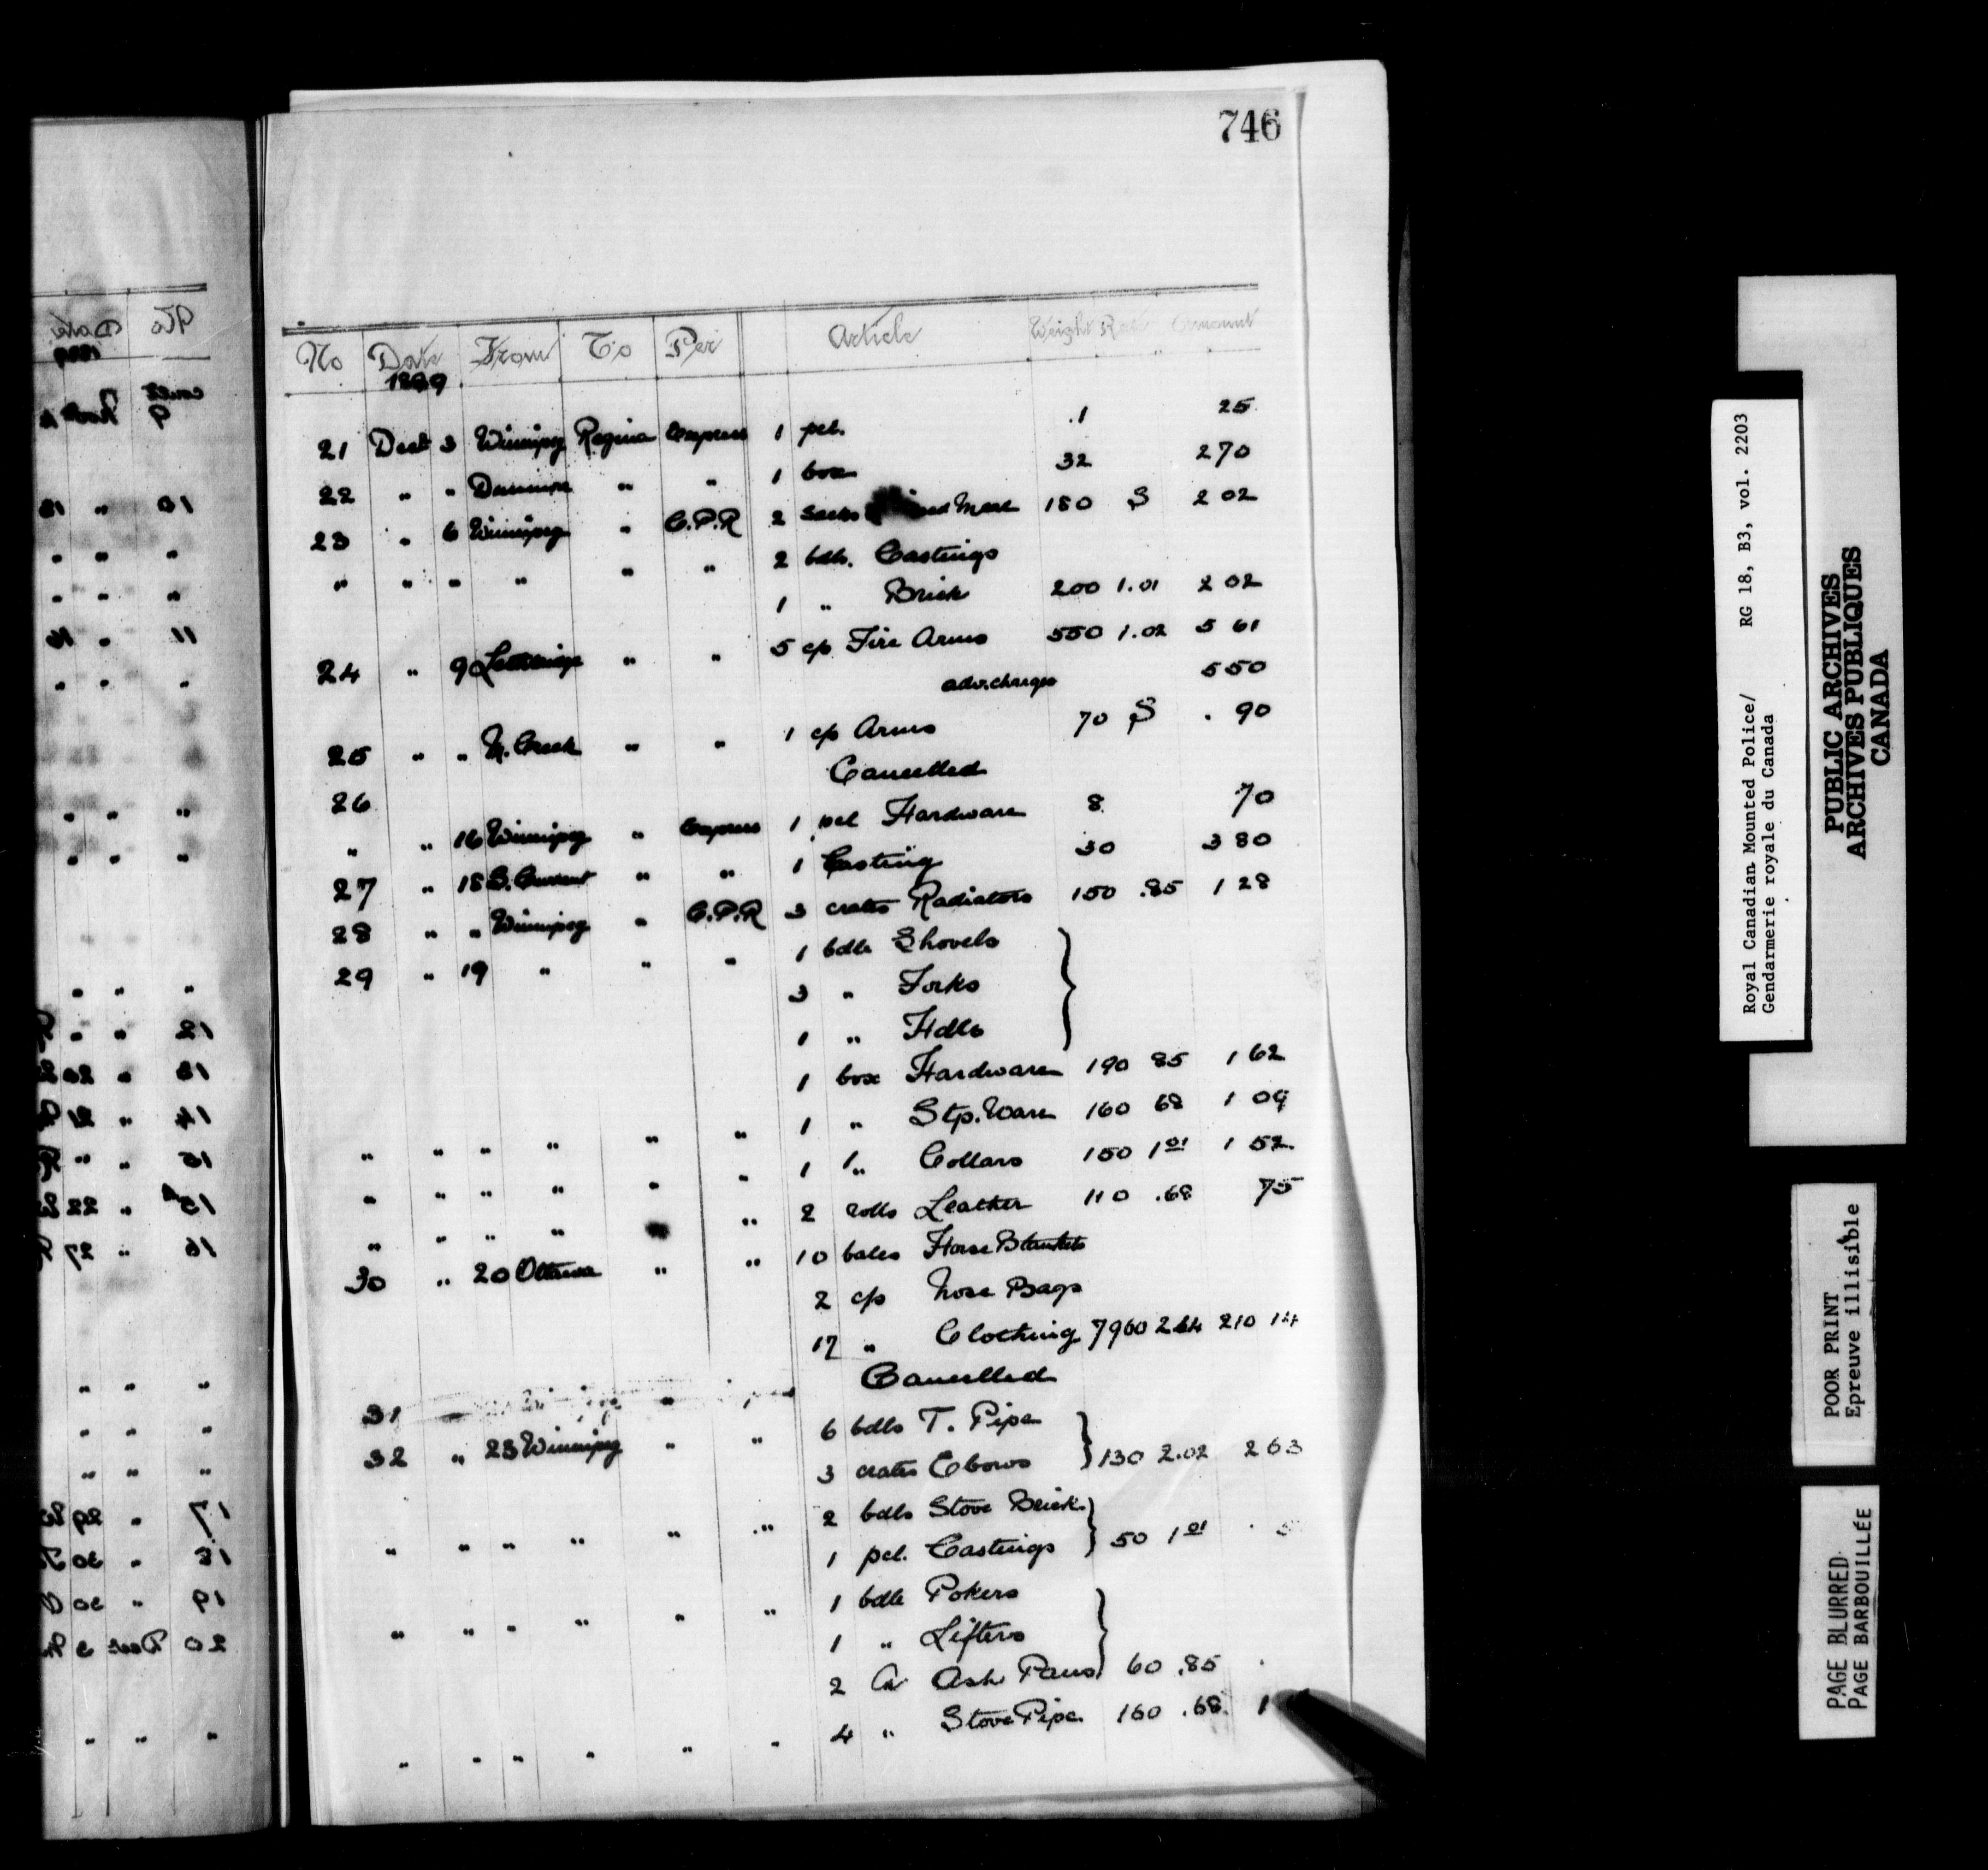 746
No Date From To Per Article Weight Rate Amount
1899
21 Dect 3 Winnipeg Regina Express 1 pcl. .1 25
22 " " " " 1 box 32 2 70
23 " 6 Winnipeg " C.P.R 2 sacks Meal 180 S 2 02
" " " " " " 2 bdls. Castings
1 " Brick 200 1.01 2 02
24 " 9 Lethbridge " " 5 c/s Fire Arms 550 1.02 5 61
adv. charges 5 50
25 " " M. Creek " " 1 c/s Arms 70 S . 90
26 Cancelled
" " 16 Winnipeg " Express 1 pcl Hardware 8 70
27 " 18 S. Current " " 1 Casting 30 3 80
28 " " Winnipeg " C.P.R 3 crates Radiators 150 .85 1 28
29 " 19 " " " 1 bdle Shovels
3 " Forks
1 " Hdls
1 box Hardware 190 85 1 62
" " " " " " 1 " Stp. Ware 160 68 1 09
" " " " " " 1 " Collars 150 1 01 1 52
" " " " " 2 rolls Leather 110 .68 75
30 " 20 Ottawa " " 10 bales Horse Blankets
2 c/s Nose Bags
17 " Clothing 7960 264 210 14
31 Cancelled
32 " 23 Winnipeg " " 6 bdls T. Pipe
3 crates Elbows 130 2.02 2 63
" " " " " " 2 bdls Stove Brick
1 pcl. Castings 50 1 01
" " " " " " 1 bdle Pokers
1 " Lifters
2 Cr Ash Pans 60 .85
" " " " " " 4 " Stove Pipe 160 .68 1
Royal Canadian Mounted Police/ RG 18, B3, vol. 2203
Gendarmerie royale du Canada
PUBLIC ARCHIVES
ARCHIVES PUBLIQUES
CANADA
POOR PRINT
Epreuve illisible
PAGE BLURRED
PAGE BARBOUILLÉE